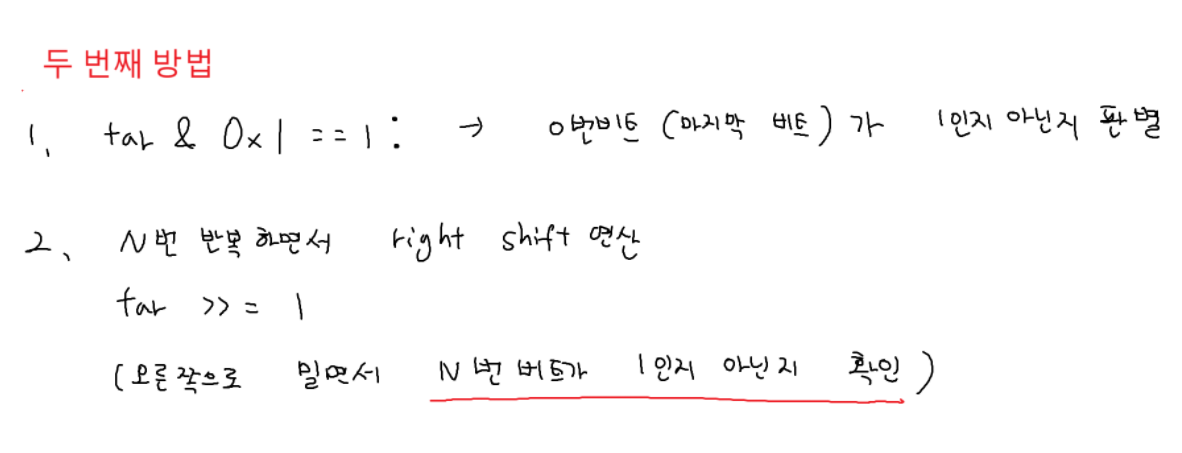 두 번째 방법
1, tar & 0x1 == 1 : → 0번비트 (마지막 비트) 가 1인지 아닌지 판별
2, N번 반복하면서 right shift 연산
tar >>= 1
(오른쪽으로 밀면서 N번 비트가 1인지 아닌지 확인)